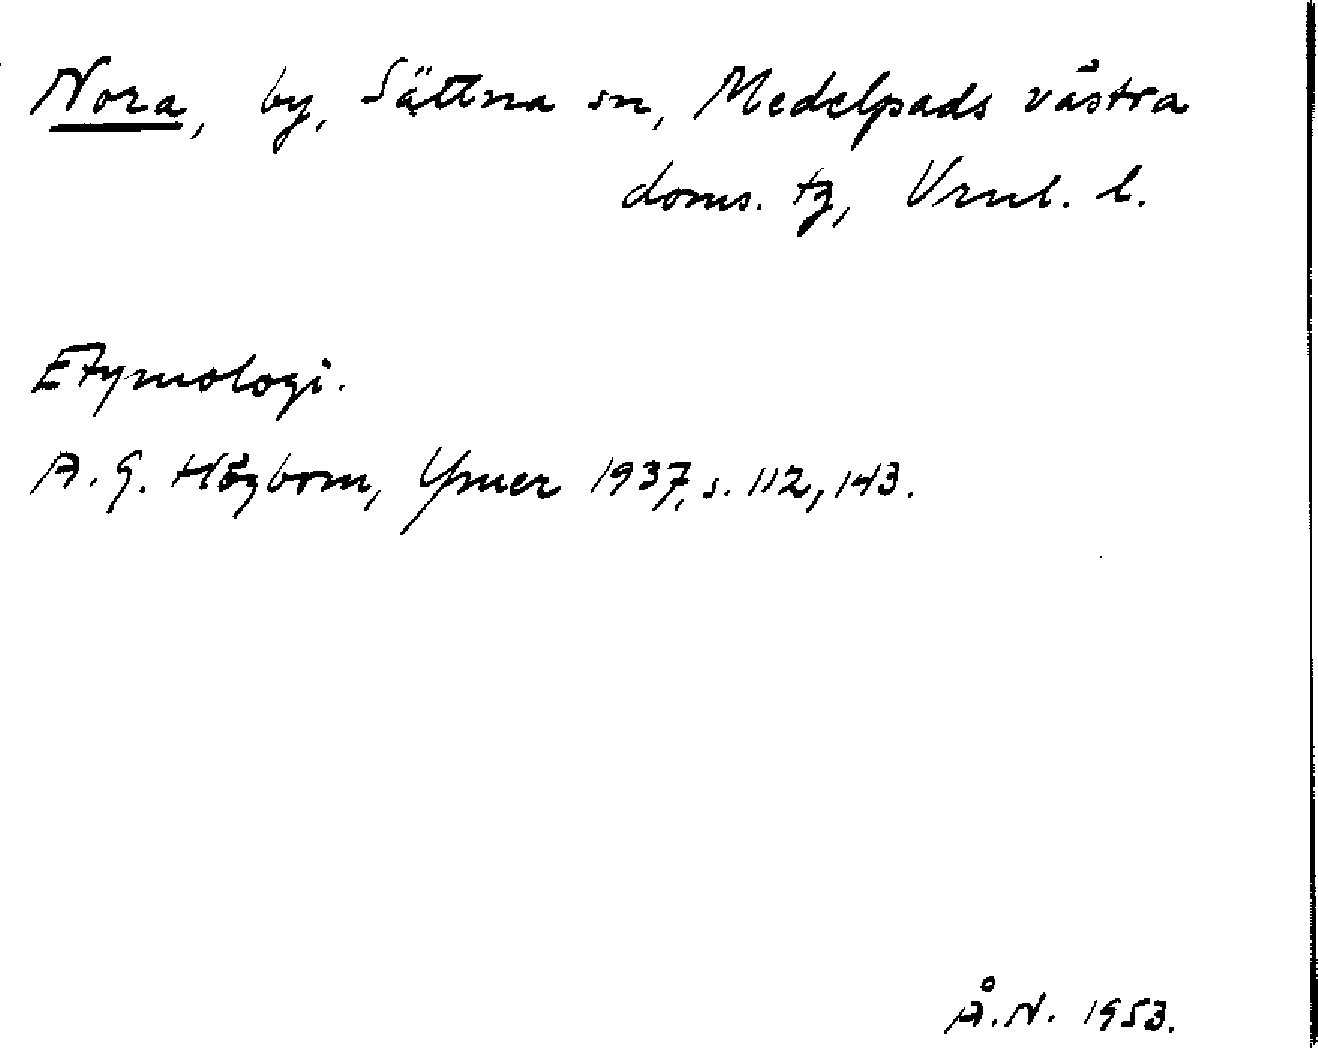 Nora, by, Sättna sn, Medelpads västra
doms. tg, Vrnl. l.
Etymologi.
A. G. Högbom, Ymer 1937, s. 112, 143.
Å. N. 1953.